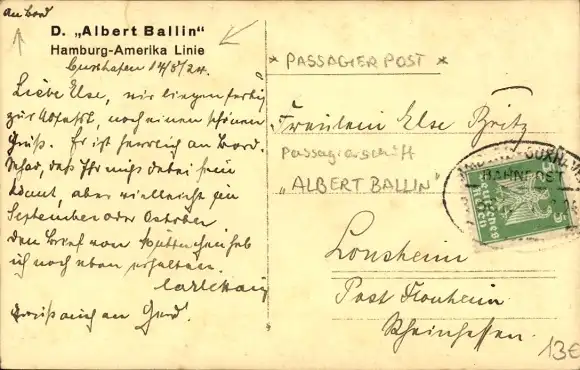 an Bord
D. „Albert Ballin"
Hamburg-Amerika Linie
Cuxhafen 14/8/24.
Liebe Else, wir liegen fertig
zur Abfahrt, noch einen schönen
Gruß. Es ist herrlich an Bord.
Schad, daß Ihr nicht dabei sein
könnt, aber vielleicht im
September oder Oktober
den Brief von Mütterchen hab
ich noch eben erhalten.
Gruß auch an Gerd.
* PASSAGIER POST *
Fräulein Else
Passagierschiff
„ALBERT BALLIN"
Lonsheim
Post Flonheim
Rheinhessen.
BAHNPOST
Deutsches Reich
5
13€